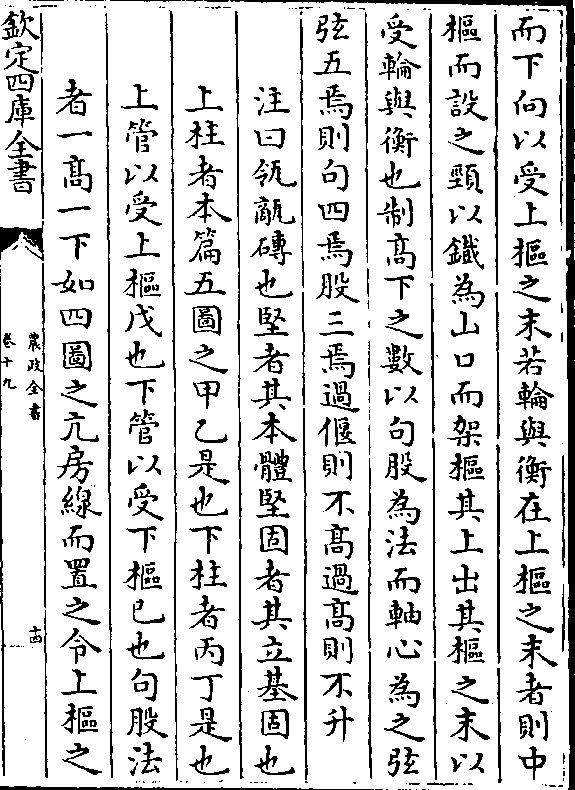 而下向以受上樞之末若輪與衡在上樞之末者則中
樞而設之頸以鐵為山口而架樞其上出其樞之末以
受輪與衡也制髙下之數以句股為法而軸心為之弦
弦五焉則句四焉股三焉過偃則不髙過髙則不升
注曰瓴甋磚也堅者其本體堅固者其立基固也
上柱者本篇五圖之甲乙是也下柱者丙丁是也
上管以受上樞戊也下管以受下樞己也句股法
者一髙一下如四圖之亢房線而置之令上樞之
欽定四庫全書
農政全書
卷十九
十四